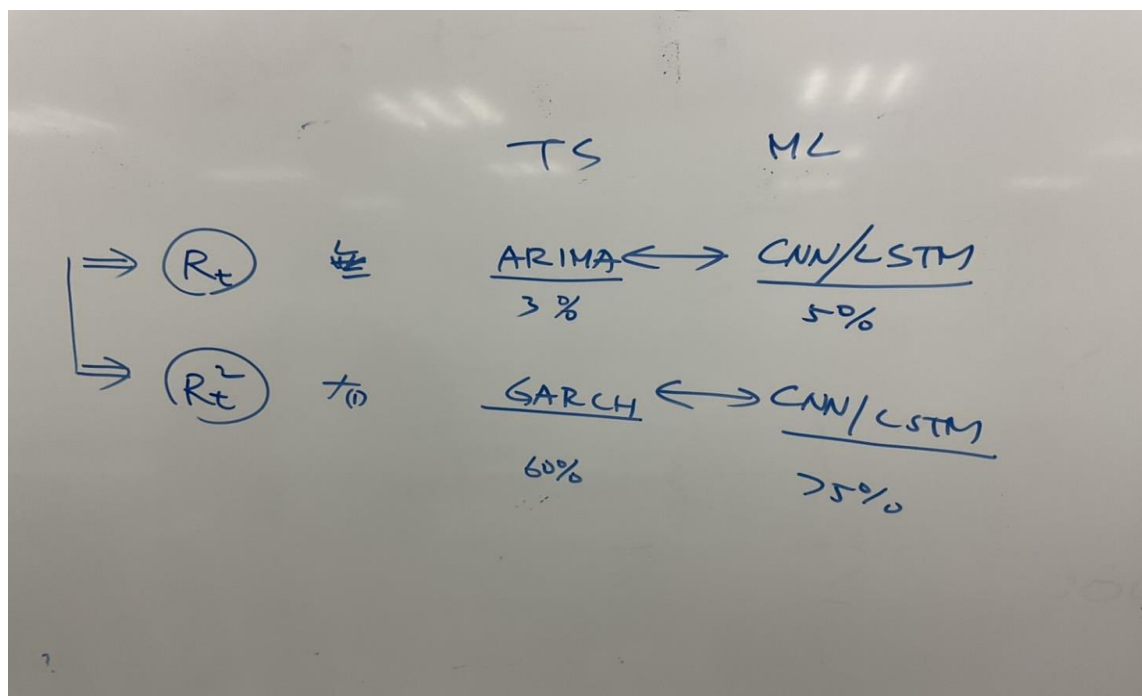 TS ML
⇒ Rt 無 ARIMA ↔ CNN/LSTM
3% 5%
⇒ Rt² 有 GARCH ↔ CNN/LSTM
60% >5%